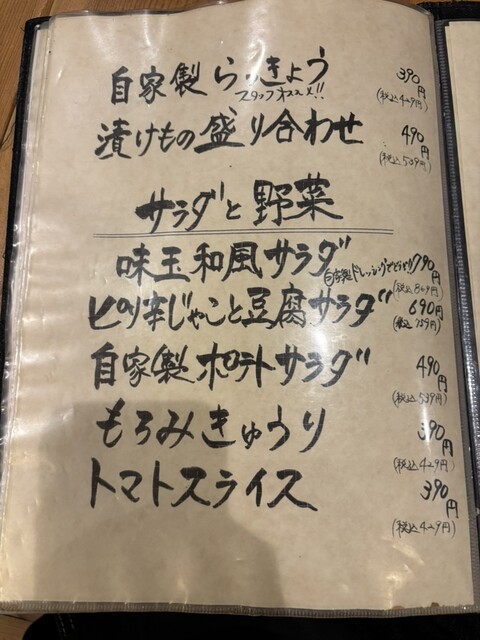 自家製らっきょう 390円
スタッフオススメ!! (税込429円)
漬けもの盛り合わせ 490円
(税込539円)
サラダと野菜
味玉和風サラダ 790円
自家製ドレッシングでどうぞ (税込869円)
ピリ辛じゃこと豆腐サラダ 690円
(税込759円)
自家製ポテトサラダ 490円
(税込539円)
もろみきゅうり 390円
(税込429円)
トマトスライス 390円
(税込429円)